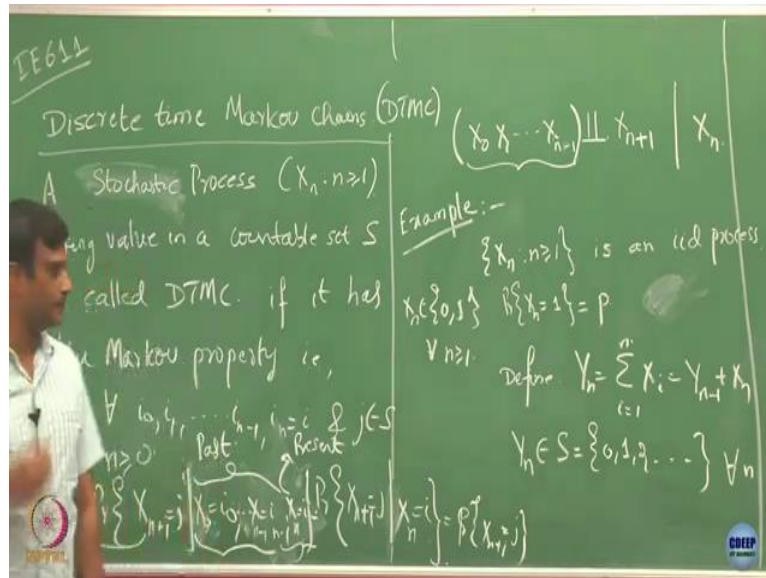 IE611
Discrete time Markov Chains (DTMC)
A Stochastic Process (Xₙ : n≥1)
value in a countable set S
called DTMC. if it has
Markov property ie,
∀ i₀, i₁, ..... iₙ₋₁, iₙ=i & j∈S
n≥0
Past Present
{Xₙ₊₁=j | X₀=i₀, .. Xₙ₋₁=iₙ₋₁, Xₙ=i} = Pr{Xₙ₊₁=j | Xₙ=i} = Pr{Xₙ₊₁=j}
(X₀ X₁ ... Xₙ₋₁) ⫫ Xₙ₊₁ | Xₙ
Example:-
{Xₙ : n≥1} is an iid process
Xₙ∈{0,1} Pr{Xₙ=1} = p
∀ n≥1.
Define Yₙ = ∑ᵢ₌₁ⁿ Xᵢ = Yₙ₋₁ + Xₙ
Yₙ ∈ S = {0,1,2 ....} ∀n
NPTEL
CDEEP